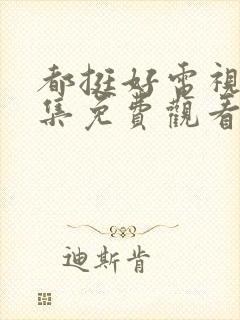 都挺好電視
集免費觀看
迪斯肯